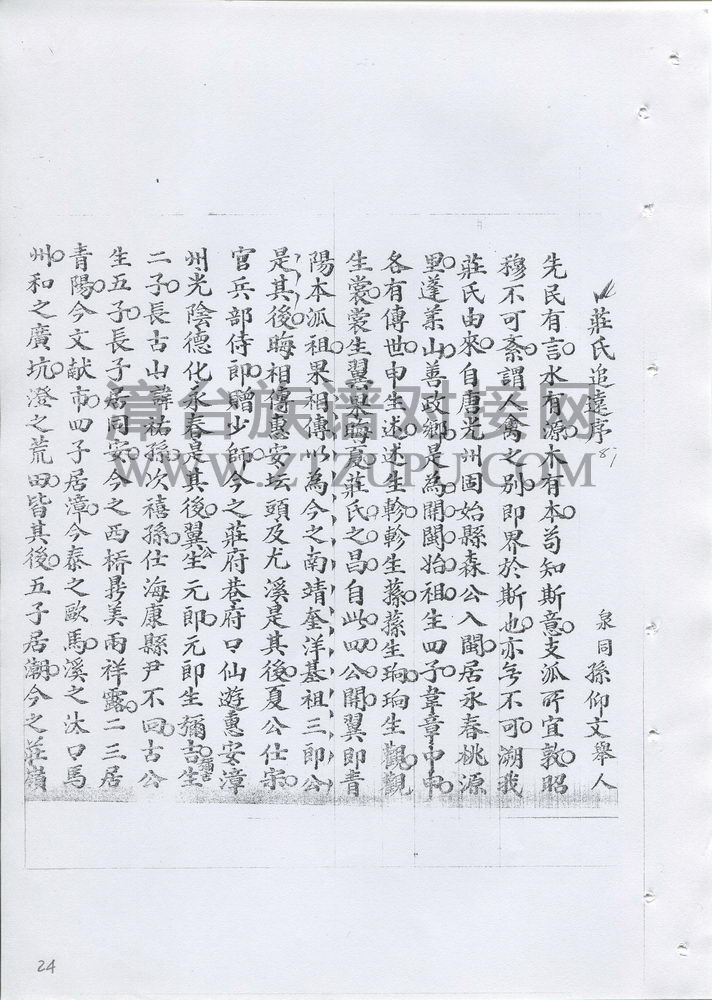 莊氏追遠序 81
泉同孫仰文舉人
先民有言水有源木有本苟知斯意支派所宜敦昭
穆不可紊謂人禽之別即界於斯也亦無不可溯我
莊氏由來自唐光州固始縣森公入閩居永春桃源
里蓬萊山善政鄉是為開閩始祖生四子韋章中申
各有傳世申生述述生軫軫生蓀蓀生珦珦生觀觀
生裳裳生翼果晦夏莊氏之昌自此四公開翼即青
陽本派祖果相傳以為今之南靖奎洋基祖三郎公
是其後晦相傳惠安坛頭及尤溪是其後夏公仕宗
官兵部侍郎贈少師今之莊府巷府口仙遊惠安漳
州光陰德化永春是其後翼公生元郎元郎生彌吉生
彌吉
二子長古山諱祐孫次禧孫仕海康縣尹不回古公
生五子長子居同安今之西橋昇美雨祥露二三居
青陽今文献市四子居漳今泰之歐馬溪之汰口馬
州和之廣坑澄之荒田皆其後五子居潮今之莊嶺
漳台族谱对接网
WWW.ZTZUPU.COM
24